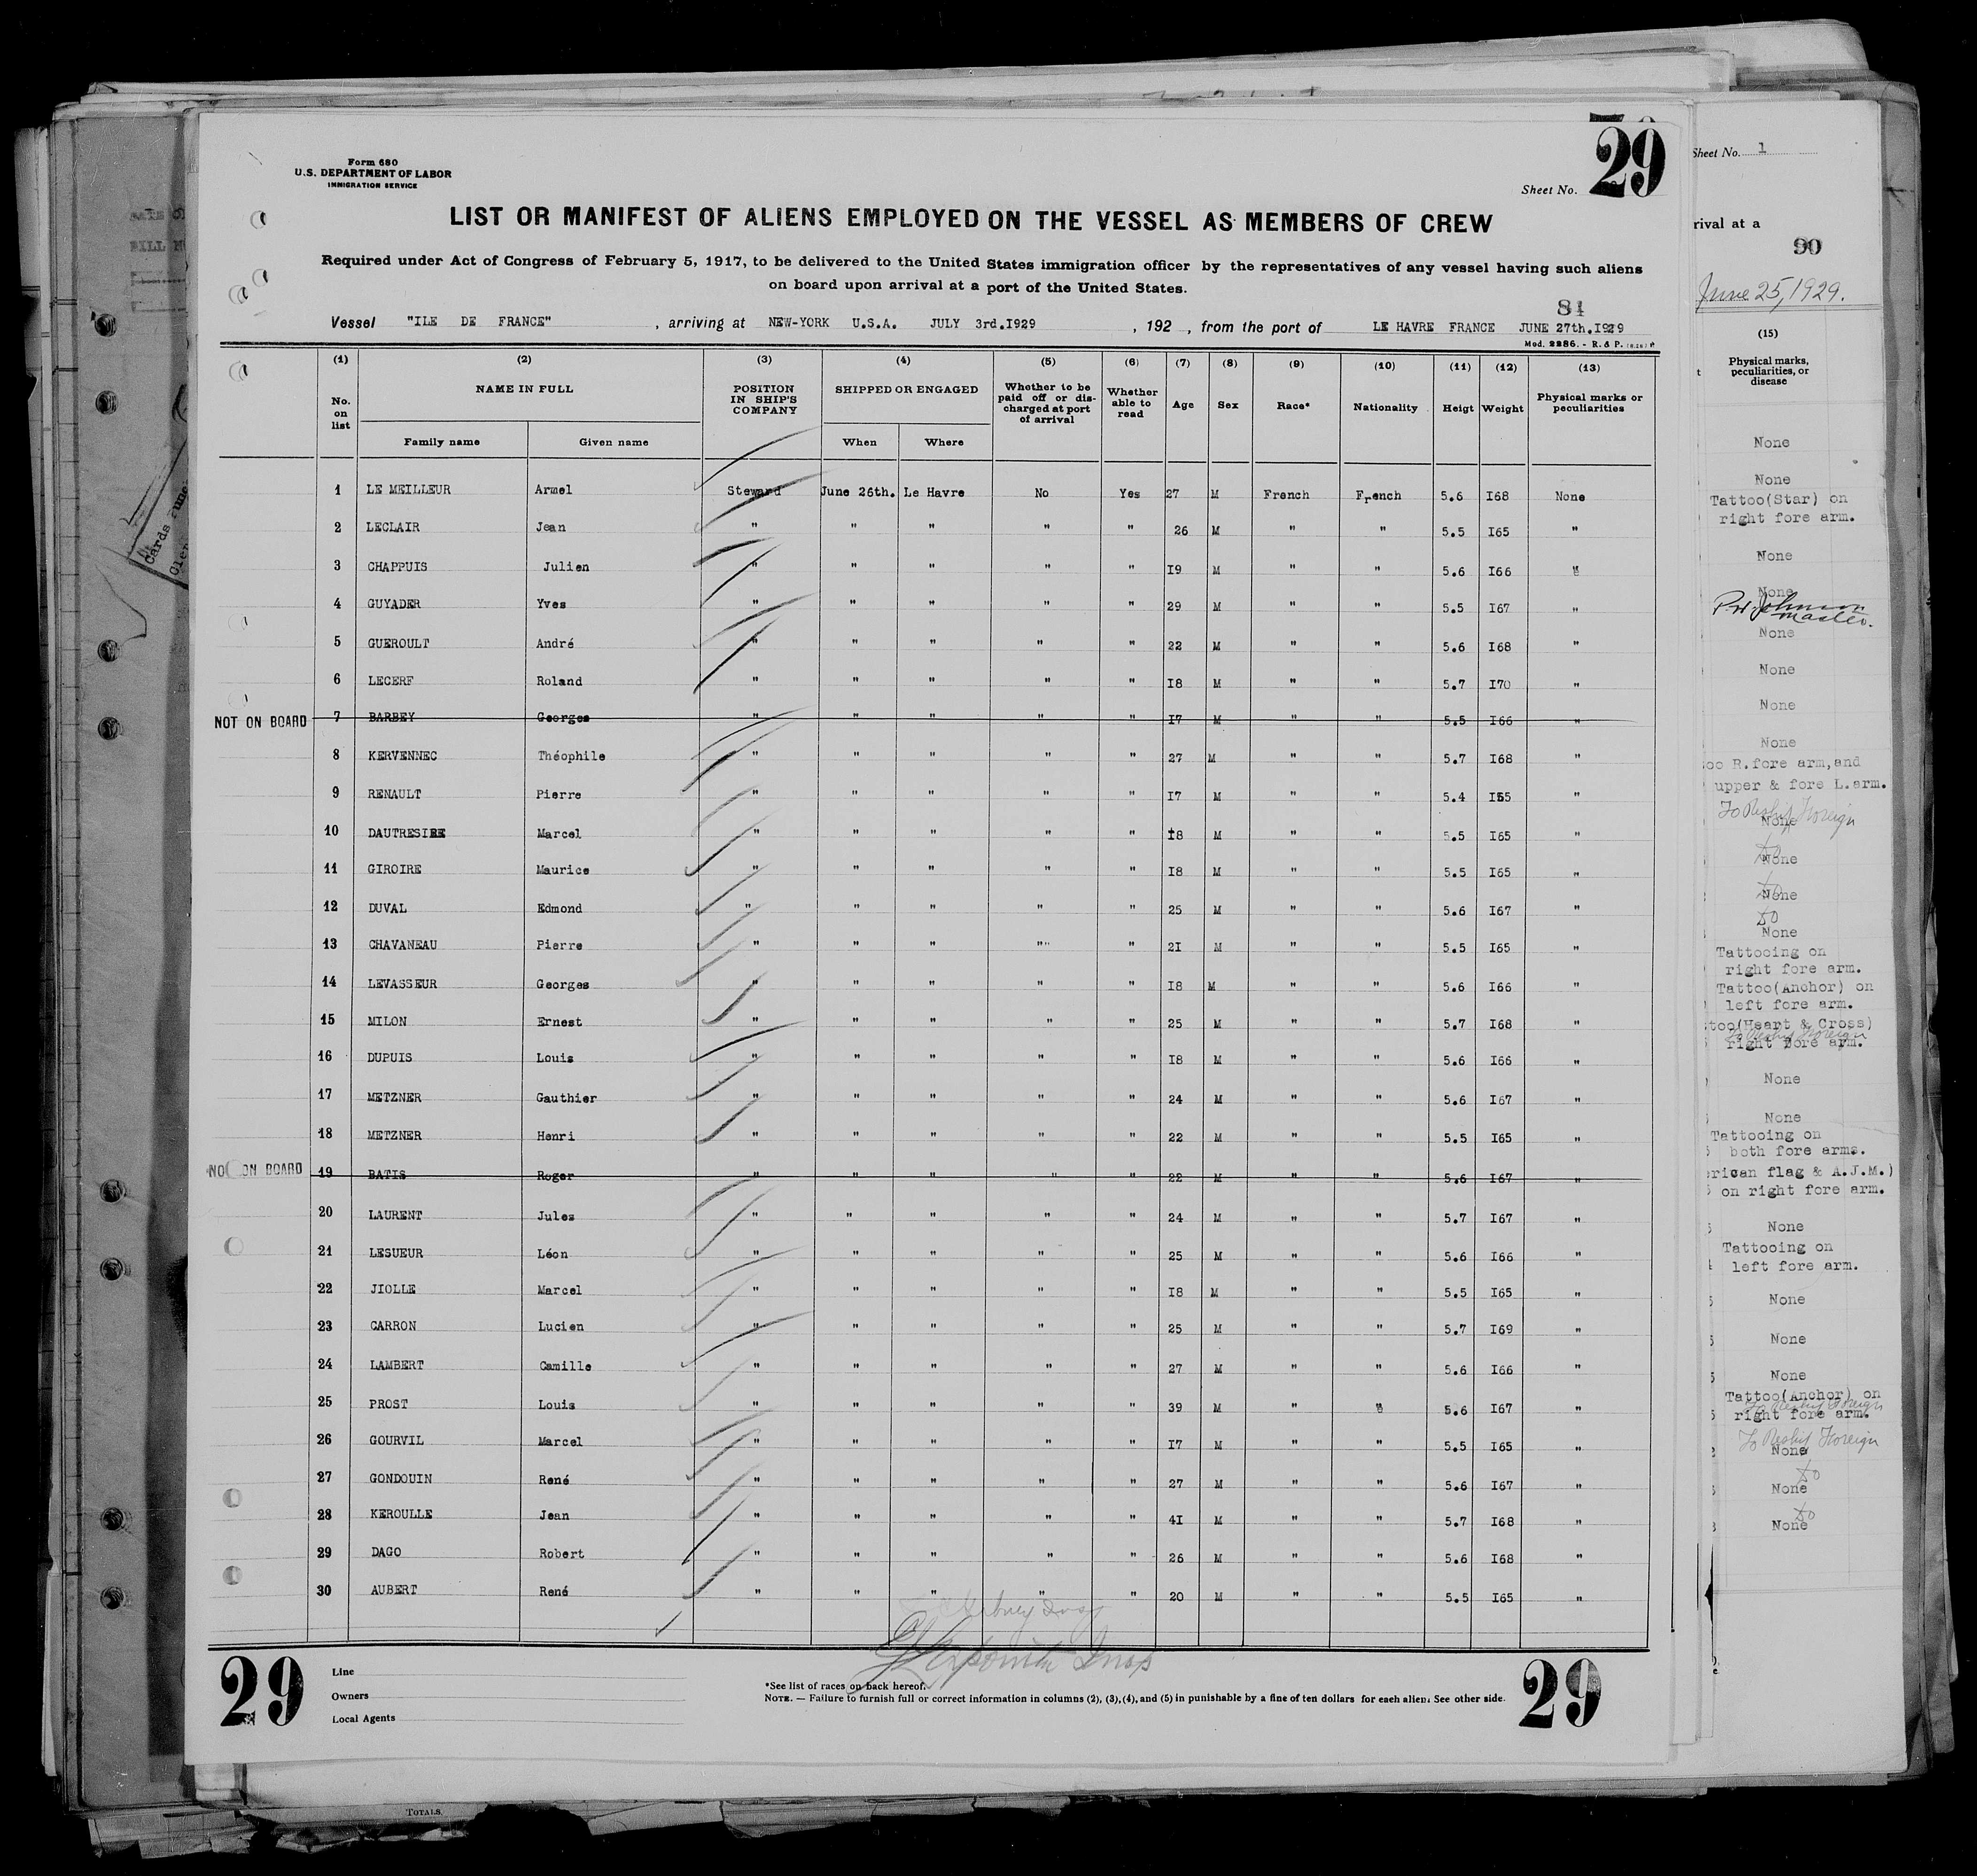 Form 680
U.S. DEPARTMENT OF LABOR
IMMIGRATION SERVICE
Sheet No. 29
LIST OR MANIFEST OF ALIENS EMPLOYED ON THE VESSEL AS MEMBERS OF CREW
Required under Act of Congress of February 5, 1917, to be delivered to the United States immigration officer by the representatives of any vessel having such aliens
on board upon arrival at a port of the United States.
84
Vessel "ILE DE FRANCE" , arriving at NEW-YORK U.S.A. JULY 3rd.I929 , 192 , from the port of LE HAVRE FRANCE JUNE 27th.I929
Mod. 2286. - R. & P.
(1) (2) (3) (4) (5) (6) (7) (8) (9) (10) (11) (12) (13)
No. on list NAME IN FULL POSITION IN SHIP'S COMPANY SHIPPED OR ENGAGED Whether to be paid off or discharged at port of arrival Whether able to read Age Sex Race* Nationality Heigt Weight Physical marks or peculiarities
Family name Given name When Where
1 LE MEILLEUR Armel Steward June 26th. Le Havre No Yes 27 M French French 5.6 I68 None
2 LECLAIR Jean " " " " " 26 M " " 5.5 I65 "
3 CHAPPUIS Julien " " " " " I9 M " " 5.6 I66 "
4 GUYADER Yves " " " " " 29 M " " 5.5 I67 "
5 GUEROULT André " " " " " 22 M " " 5.6 I68 "
6 LECERF Roland " " " " " I8 M " " 5.7 I70 "
NOT ON BOARD 7 BARBEY Georges " " " " " I7 M " " 5.5 I66 "
8 KERVENNEC Théophile " " " " " 27 M " " 5.7 I68 "
9 RENAULT Pierre " " " " " I7 M " " 5.4 I55 "
10 DAUTRESIRE Marcel " " " " " I8 M " " 5.5 I65 "
11 GIROIRE Maurice " " " " " I8 M " " 5.5 I65 "
12 DUVAL Edmond " " " " " 25 M " " 5.6 I67 "
13 CHAVANEAU Pierre " " " "" " 2I M " " 5.5 I65 "
14 LEVASSEUR Georges " " " " " I8 M " " 5.6 I66 "
15 MILON Ernest " " " " " 25 M " " 5.7 I68 "
16 DUPUIS Louis " " " " " I8 M " " 5.6 I66 "
17 METZNER Gauthier " " " " " 24 M " " 5.6 I67 "
18 METZNER Henri " " " " " 22 M " " 5.5 I65 "
NOT ON BOARD 19 BATIS Roger " " " " " 22 M " " 5.6 I67 "
20 LAURENT Jules " " " " " 24 M " " 5.7 I67 "
21 LESUEUR Léon " " " " " 25 M " " 5.6 I66 "
22 JIOLLE Marcel " " " " " I8 M " " 5.5 I65 "
23 CARRON Lucien " " " " " 25 M " " 5.7 I69 "
24 LAMBERT Camille " " " " " 27 M " " 5.6 I66 "
25 PROST Louis " " " " " 39 M " " 5.6 I67 "
26 GOURVIL Marcel " " " " " I7 M " " 5.5 I65 "
27 GONDOUIN René " " " " " 27 M " " 5.6 I67 "
28 KEROULLE Jean " " " " " 4I M " " 5.7 I68 "
29 DAGO Robert " " " " " 26 M " " 5.6 I68 "
30 AUBERT René " " " " " 20 M " " 5.5 I65 "
29
Line
Owners
Local Agents
*See list of races on back hereof.
NOTE. — Failure to furnish full or correct information in columns (2), (3), (4), and (5) in punishable by a fine of ten dollars for each alien. See other side.
29
TOTALS.
Sheet No. 1
rival at a
90
June 25, 1929.
(15)
Physical marks,
peculiarities, or
disease
None
None
Tattoo(Star) on
right fore arm.
None
None
Johnson
Master.
None
None
None
None
oo R.fore arm,and
upper & fore L.arm.
To Reship Foreign
None
do
None
do
None
do
None
Tattooing on
right fore arm.
Tattoo(Anchor) on
left fore arm.
too(Heart & Cross)
To Reship Foreign
right fore arm.
None
None
Tattooing on
both fore arms.
rican flag & A.J.M.)
on right fore arm.
None
Tattooing on
left fore arm.
None
None
None
Tattoo(Anchor) on
To Reship Foreign
right fore arm.
To Reship Foreign
None
do
None
do
None